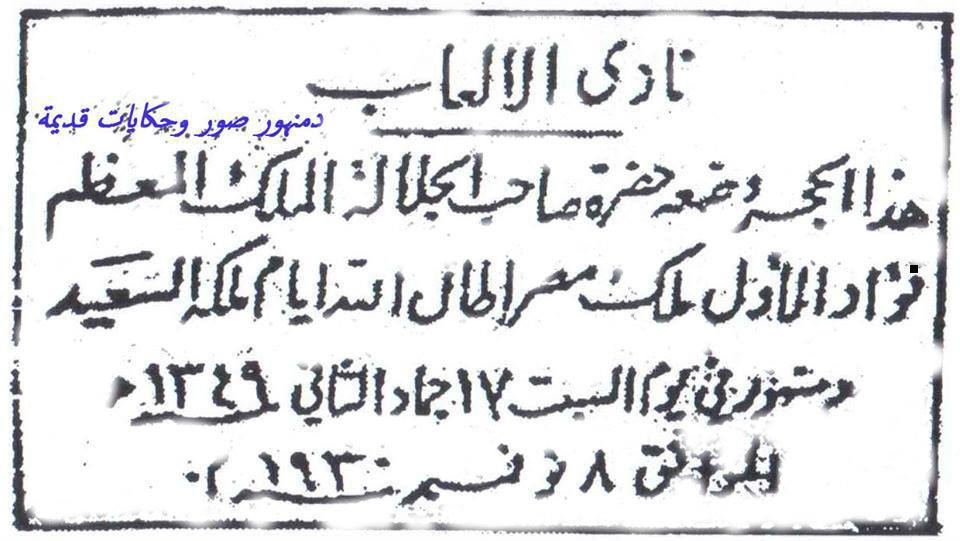 نادى الالعاب
دمنهور صور وحكايات قديمة
هذا الحجر وضعه حضرة صاحب الجلالة الملك المعظم
فؤاد الأول ملك مصر اطال الله ايام ملكه السعيد
دمنهور فى يوم السبت ١٧ جماد الثانى ١٣٤٩ ه
الموافق ٨ نوفمبر ١٩٣٠ م